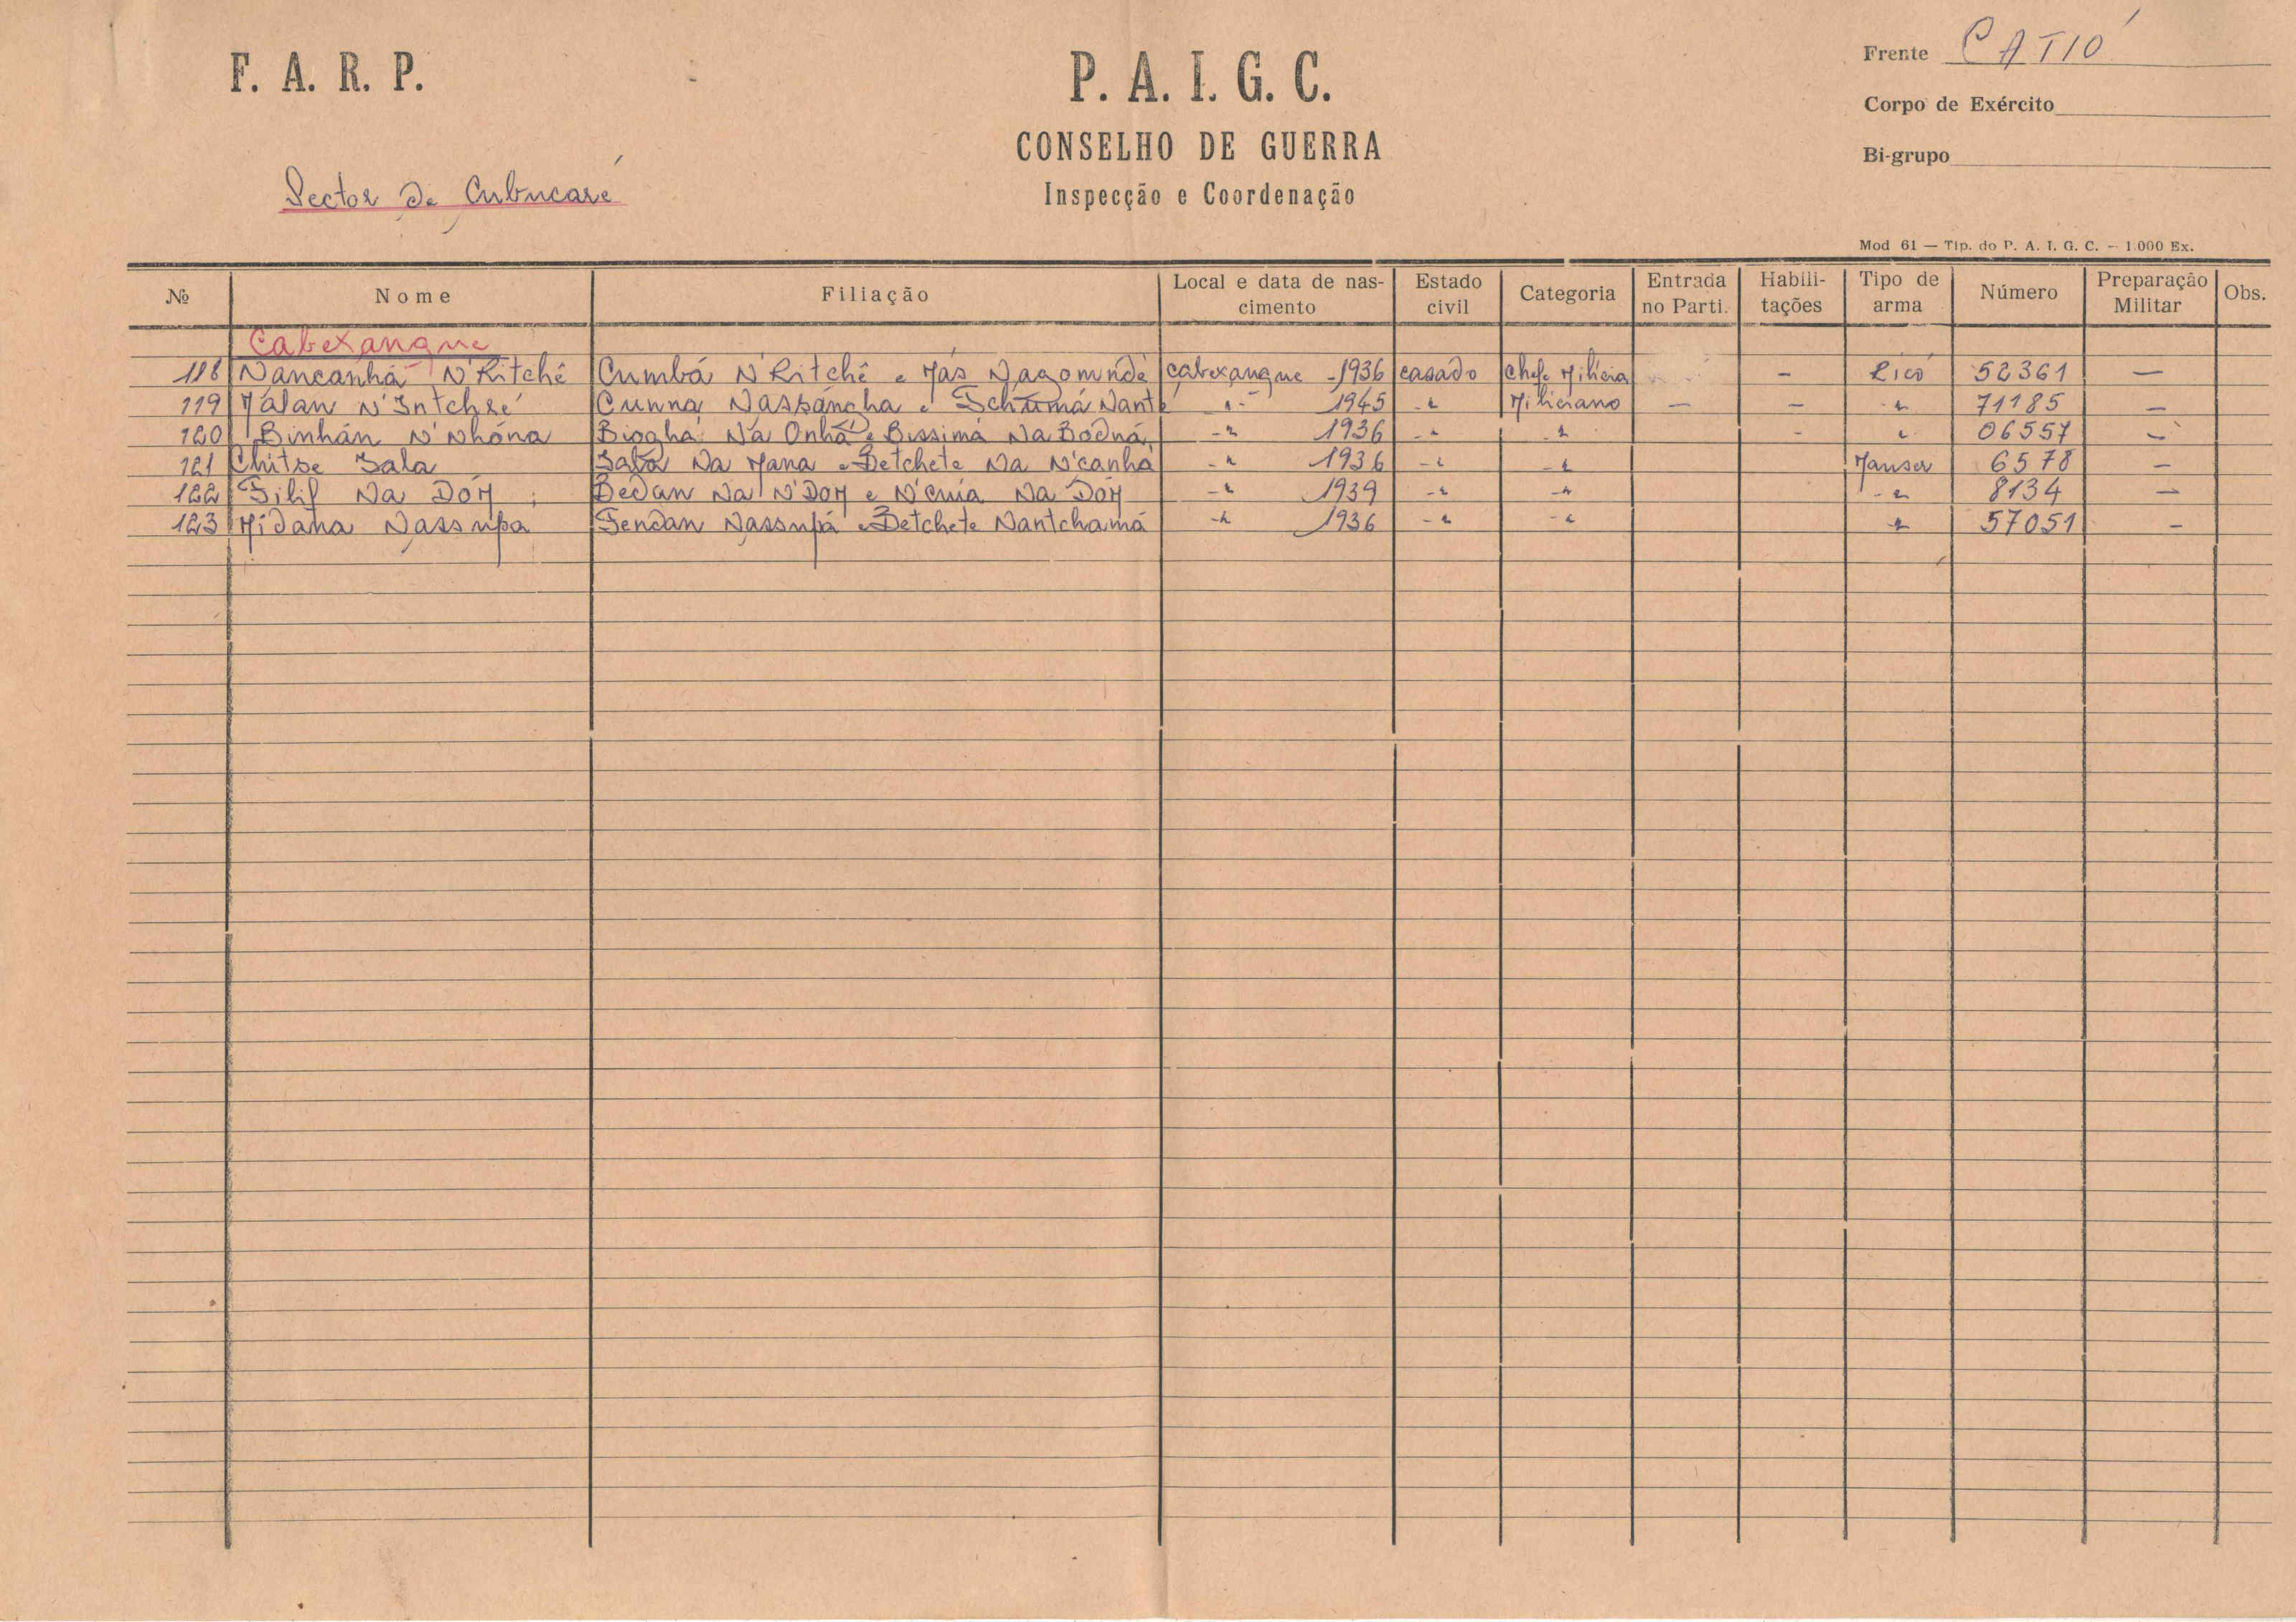 F. A. R. P.
P. A. I. G. C.
CONSELHO DE GUERRA
Inspecção e Coordenação
Frente CATIÓ
Corpo de Exército
Bi-grupo
Sector De Cubucaré
Mod 61 — Tip. do P. A. I. G. C. — 1.000 Ex.
№ Nome Filiação Local e data de nascimento Estado civil Categoria Entrada no Parti. Habilitações Tipo de arma Número Preparação Militar Obs.
Cabexanque
118 Nancanhá N'Ritchê Cumbá N'Ritchê e Más Nagomndé cabexanque - 1936 casado Chefe Milicia - Rico 52361 —
119 Malan N'Intchré Cunna Nassancha e Tchumá Nanté -"- 1945 -"- Miliciano — — -"- 71185 —
120 Binhán N'Nhóna Bioghá Na Onhá e Bissimá Na Bodná -"- 1936 -"- -"- - " 06557 —
121 Chitse Sala Sala Na Mana e Betchete Na N'canhá -"- 1936 -"- -"- Mauser 6578 —
122 Filif Na DóM Bedan Na N'DoM e N'Cuia Na DóM -"- 1939 -"- -"- -"- 8134 —
123 Midana Nassupa Tendan Nassupá e Betchete Nantchamá -"- 1936 -"- -"- -"- 57051 —